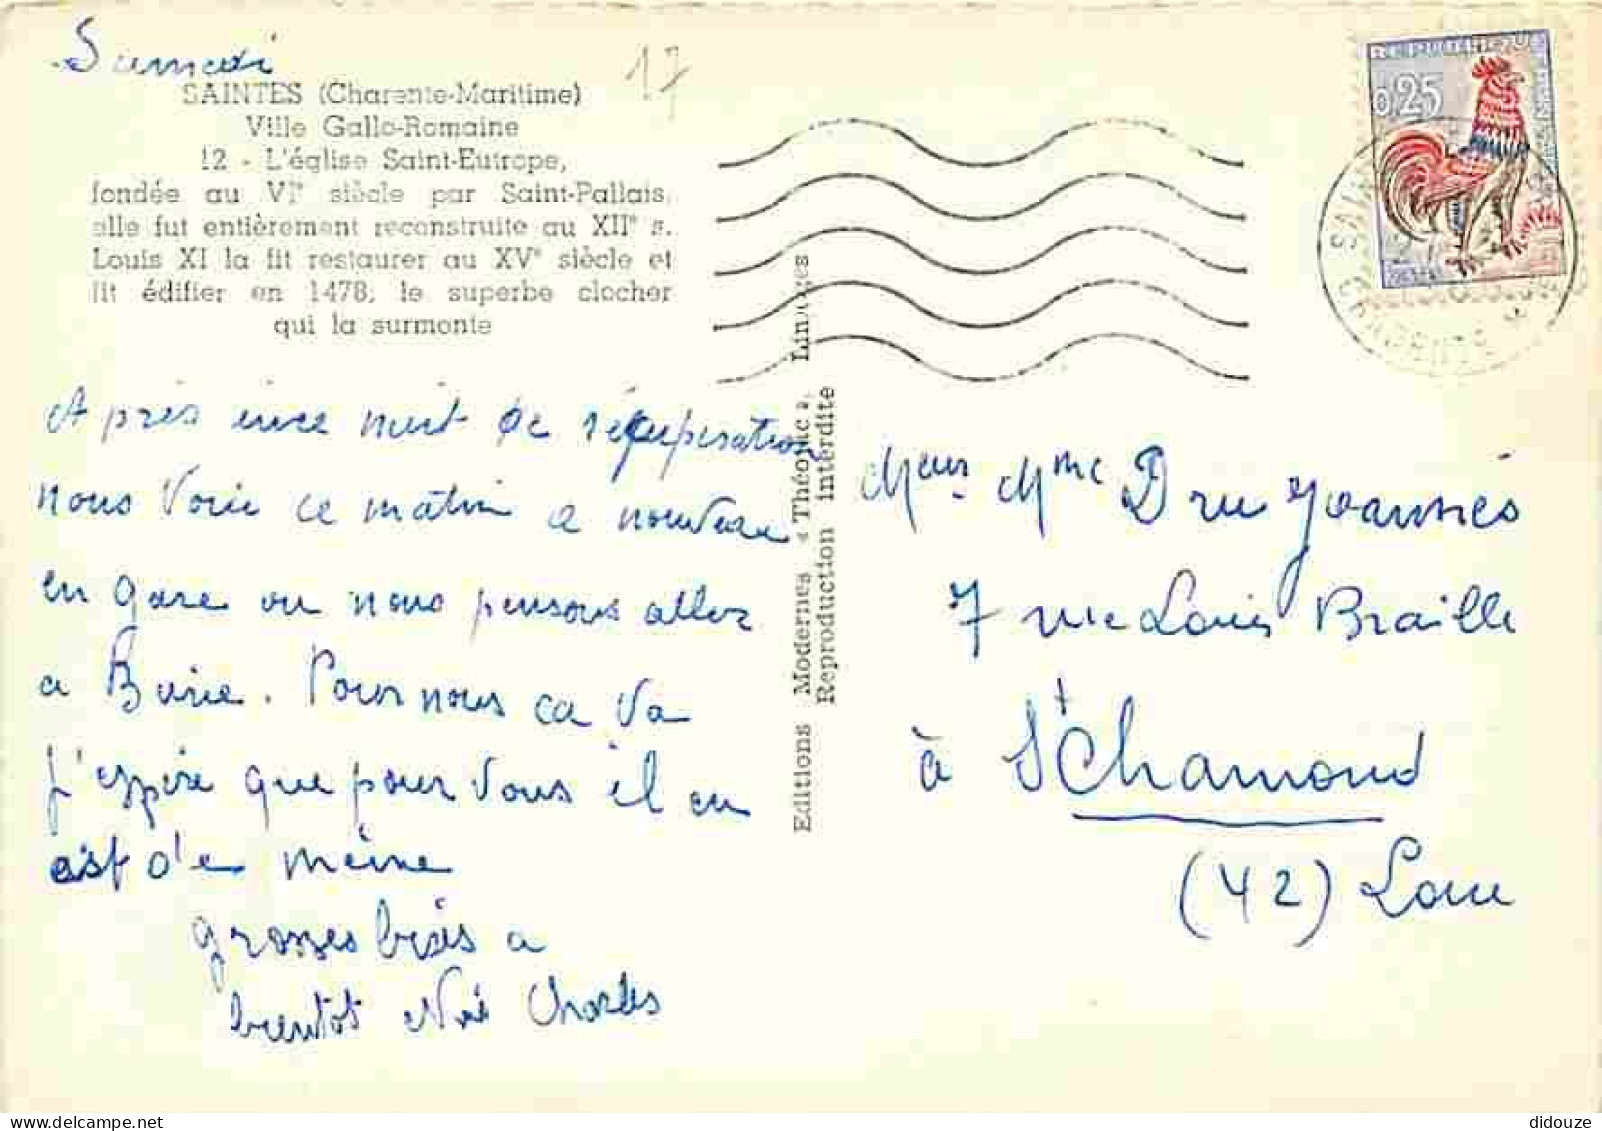 Samedi
17
SAINTES (Charente-Maritime)
Ville Gallo-Romaine
12 - L'église Saint-Eutrope,
fondée au VIe siècle par Saint-Pallais,
elle fut entièrement reconstruite au XIIe s.
Louis XI la fit restaurer au XVe siècle et
fit édifier en 1478, le superbe clocher
qui la surmonte
Après une nuit de récupération
nous voici ce matin a nouveau
en gare ou nous pensons aller
a Burie. Pour nous ca va
j'espère que pour vous il en
est de même
grosses bises a
bientot Charles
Editions Modernes « Théojac », Limoges
Reproduction interdite
REPUBLIQUE
0,25
Meur Mme Dru Joannès
7 rue Louis Braille
à St Chamond
(42) Loire
didouze